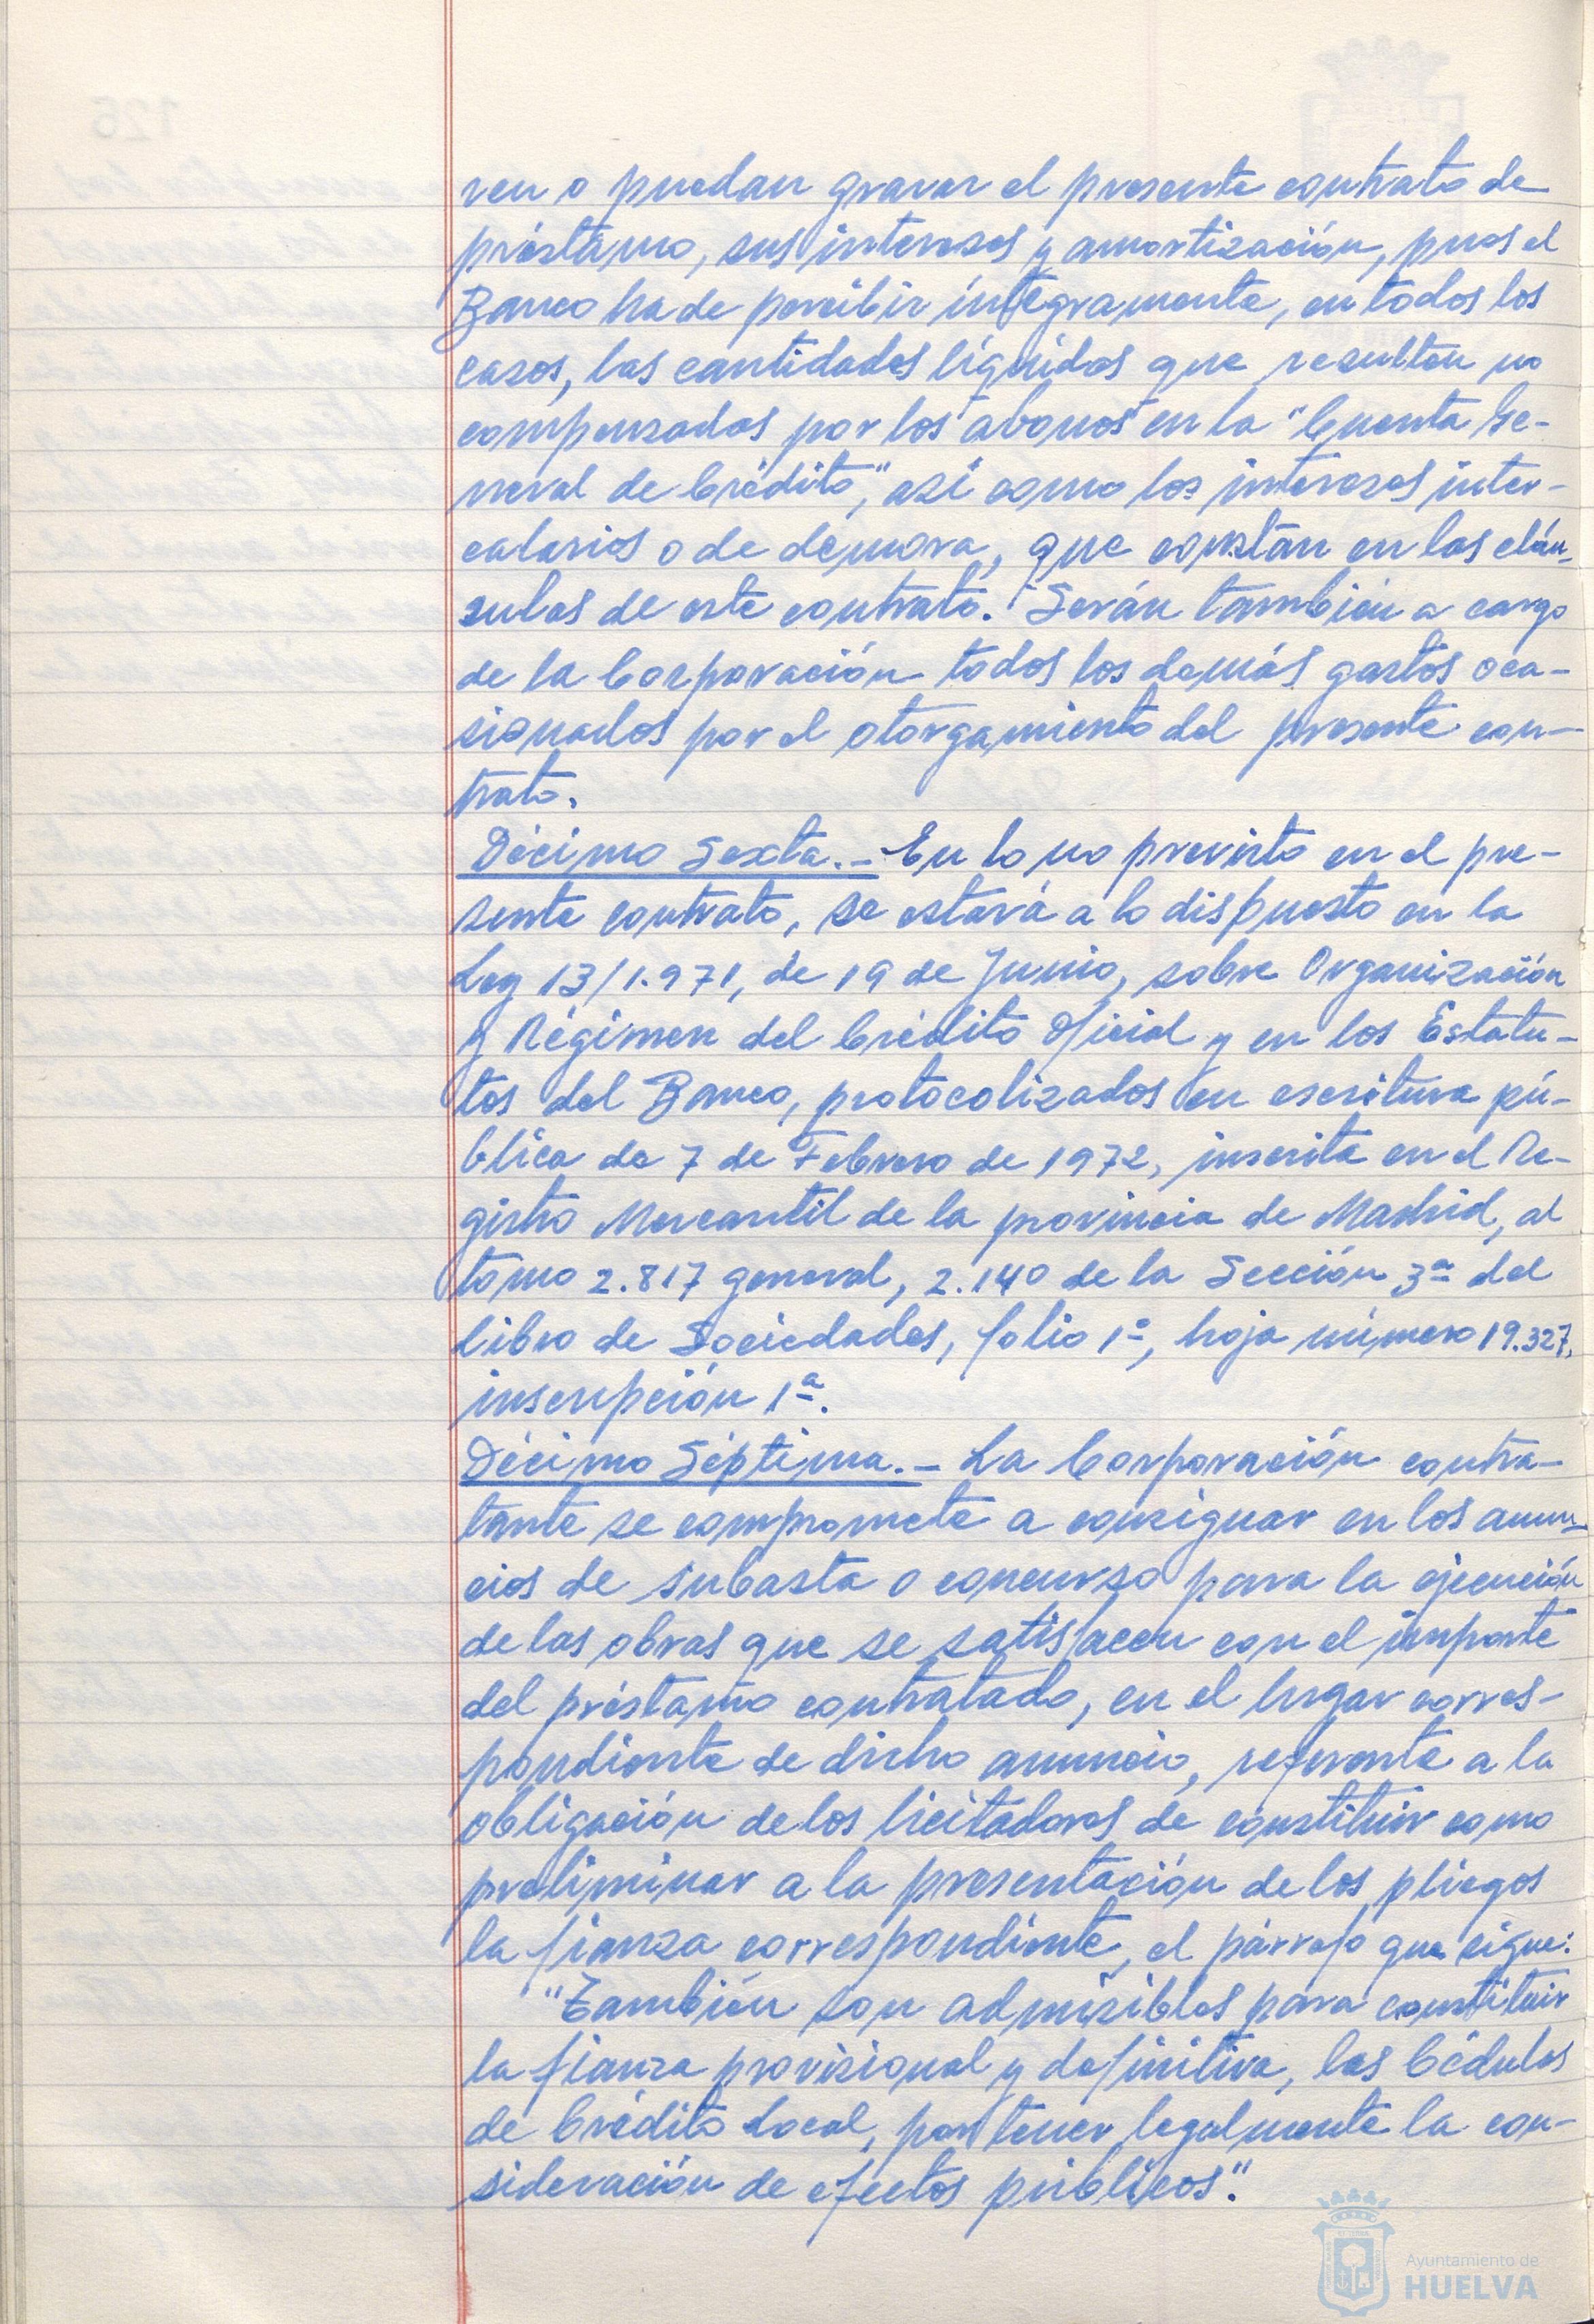 ven o puedan gravar el presente contrato de
préstamo, sus intereses y amortización, pues el
Banco ha de percibir íntegramente, en todos los
casos, las cantidades líquidas que resulten no
compensadas por los abonos en la "Cuenta Ge-
neral de Crédito", así como los intereses inter-
calarios o de demora, que constan en las cláu-
sulas de este contrato. Serán también a cargo
de la Corporación todos los demás gastos oca-
sionados por el otorgamiento del presente con-
trato.
Décimo Sexta.- En lo no previsto en el pre-
sente contrato, se estará a lo dispuesto en la
Ley 13/1.971, de 19 de Junio, sobre Organización
y Régimen del Crédito Oficial y en los Estatu-
tos del Banco, protocolizados en escritura pú-
blica de 7 de Febrero de 1972, inscrita en el Re-
gistro Mercantil de la provincia de Madrid, al
tomo 2.817 general, 2.140 de la Sección 3ª del
Libro de Sociedades, folio 1º, hoja número 19.327,
inscripción 1ª.
Décimo Séptima.- La Corporación contra-
tante se compromete a consignar en los anun-
cios de subasta o concurso para la ejecución
de las obras que se satisfacen con el importe
del préstamo contratado, en el lugar corres-
pondiente de dicho anuncio, referente a la
obligación de los licitadores de constituir como
preliminar a la presentación de los pliegos
la fianza correspondiente, el párrafo que sigue:
"También son admisibles para constituir
la fianza provisional y definitiva, las Cédulas
de Crédito Local, por tener legalmente la con-
sideración de efectos públicos".
Ayuntamiento de
HUELVA